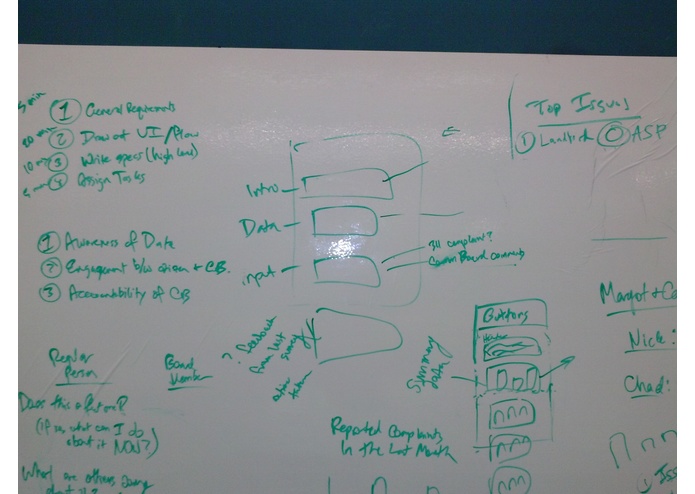 5 min ① General Requirements
20 min ② Draw out UI/Flow
10 min ③ Write specs (high level)
5 min ④ Assign Tasks
① Awareness of Data
② Engagement b/w citizen + CB.
③ Accountability of CB
Regular Person
Board Member
Does this affect me?
(if so, what can I do
about it NOW?)
What are others saying
about it?
Intro
Data
input
311 complaint?
Comm Board comments
? feedback
from last
survey
action
taken
Reported Complaints
In the Last Month
Summary
data
Buttons
Header
Top Issues
① Landlord
ASP
Margot + C
Nick:
Chad: